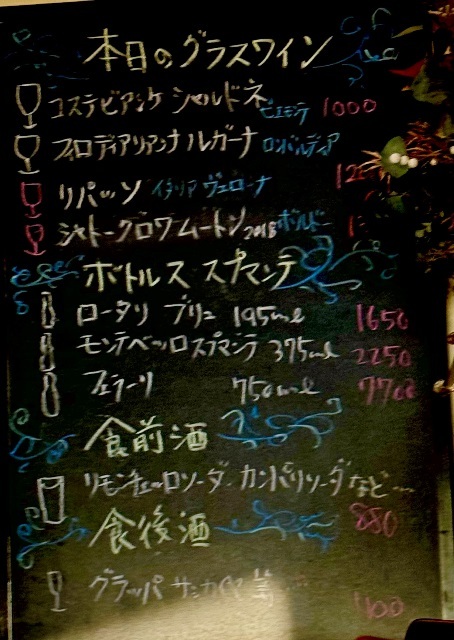 本日のグラスワイン
コステビアンケ シャルドネ ピエモンテ 1000
フィロディアリアンナ ルガーナ ロンバルディア
リパッソ イタリア ヴェローナ
シャトークロワムートン 2018 ボルドー
ボトルス スプマンテ
ロータリ ブリュ 195ml 1650
モンテベッロスプマンテ 375ml 2250
フェラーリ 750ml 7700
食前酒
リモンチェッロソーダ. カンパリソーダ など…
880
食後酒
グラッパ